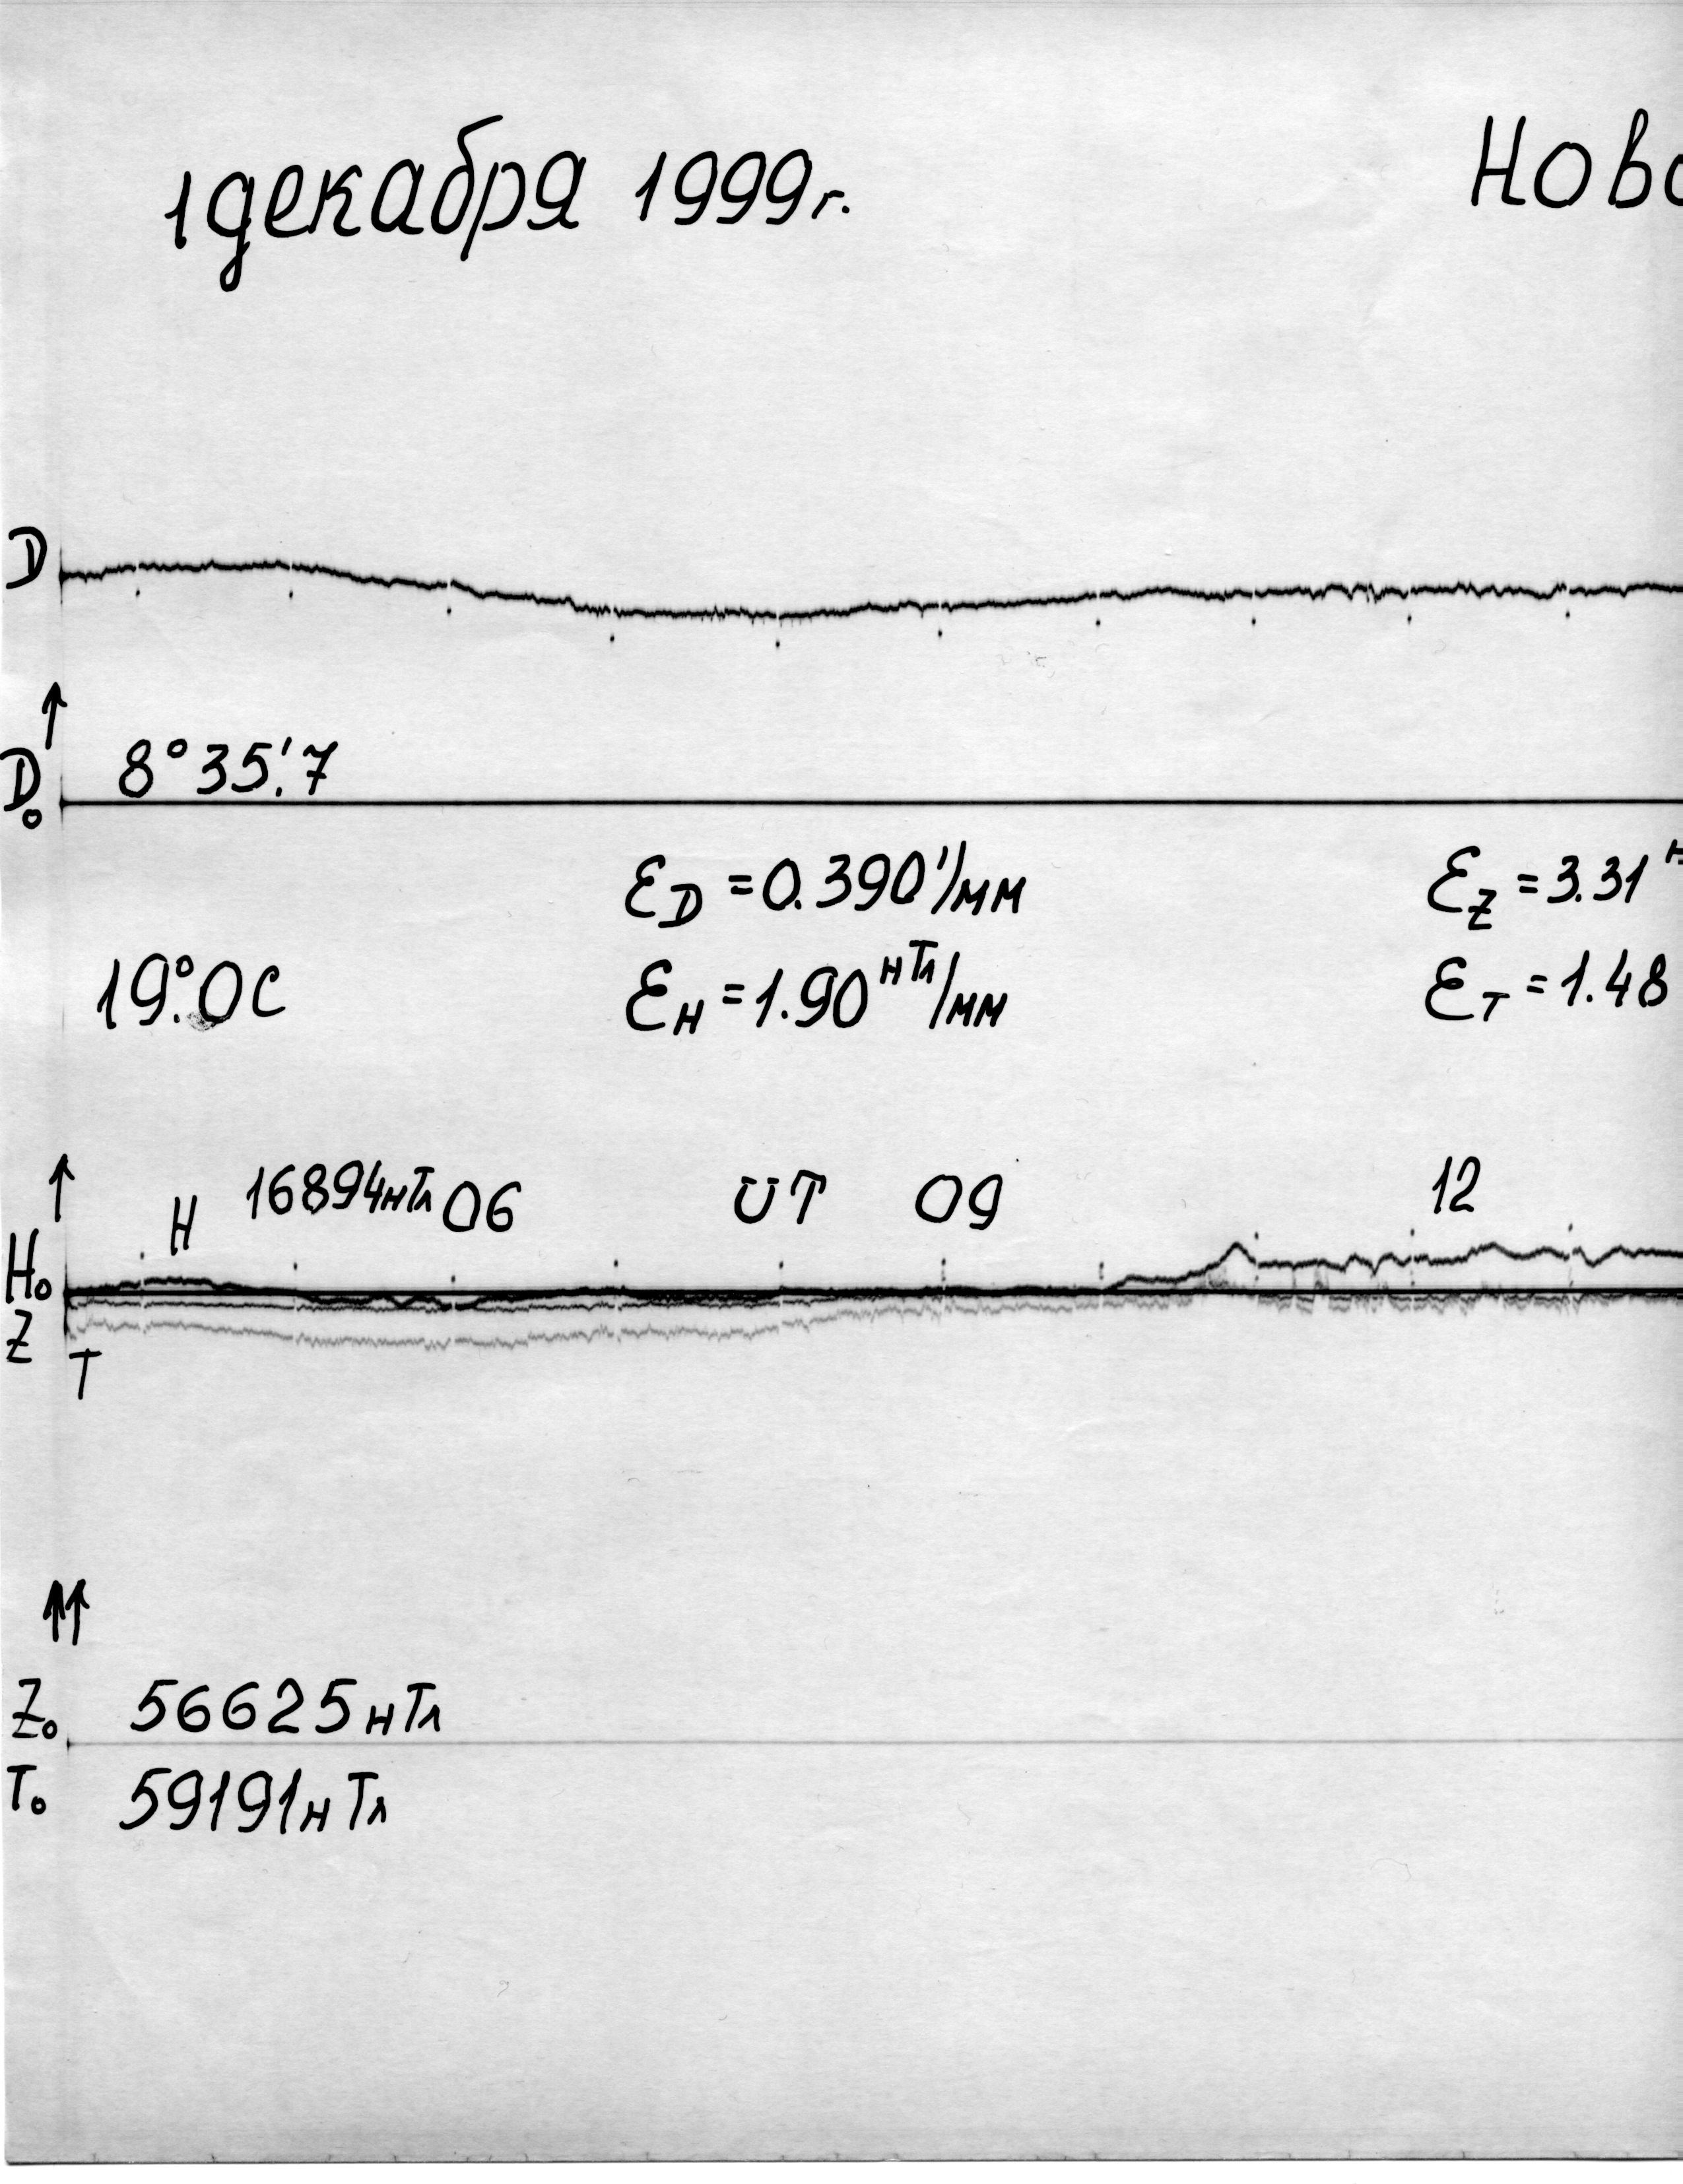 1 декабря 1999 г.
Ново
D
D₀ 8°35.'7
ε_D = 0.390'/мм
ε_Z = 3.31 н
19.°0 C
ε_H = 1.90 нТл/мм
ε_T = 1.48
H 16894нТл 06 UT 09 12
H₀
Z
T
Z₀ 56625 нТл
T₀ 59191 нТл